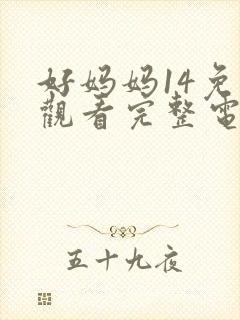 好妈妈14免
觀看完整電
五十九夜